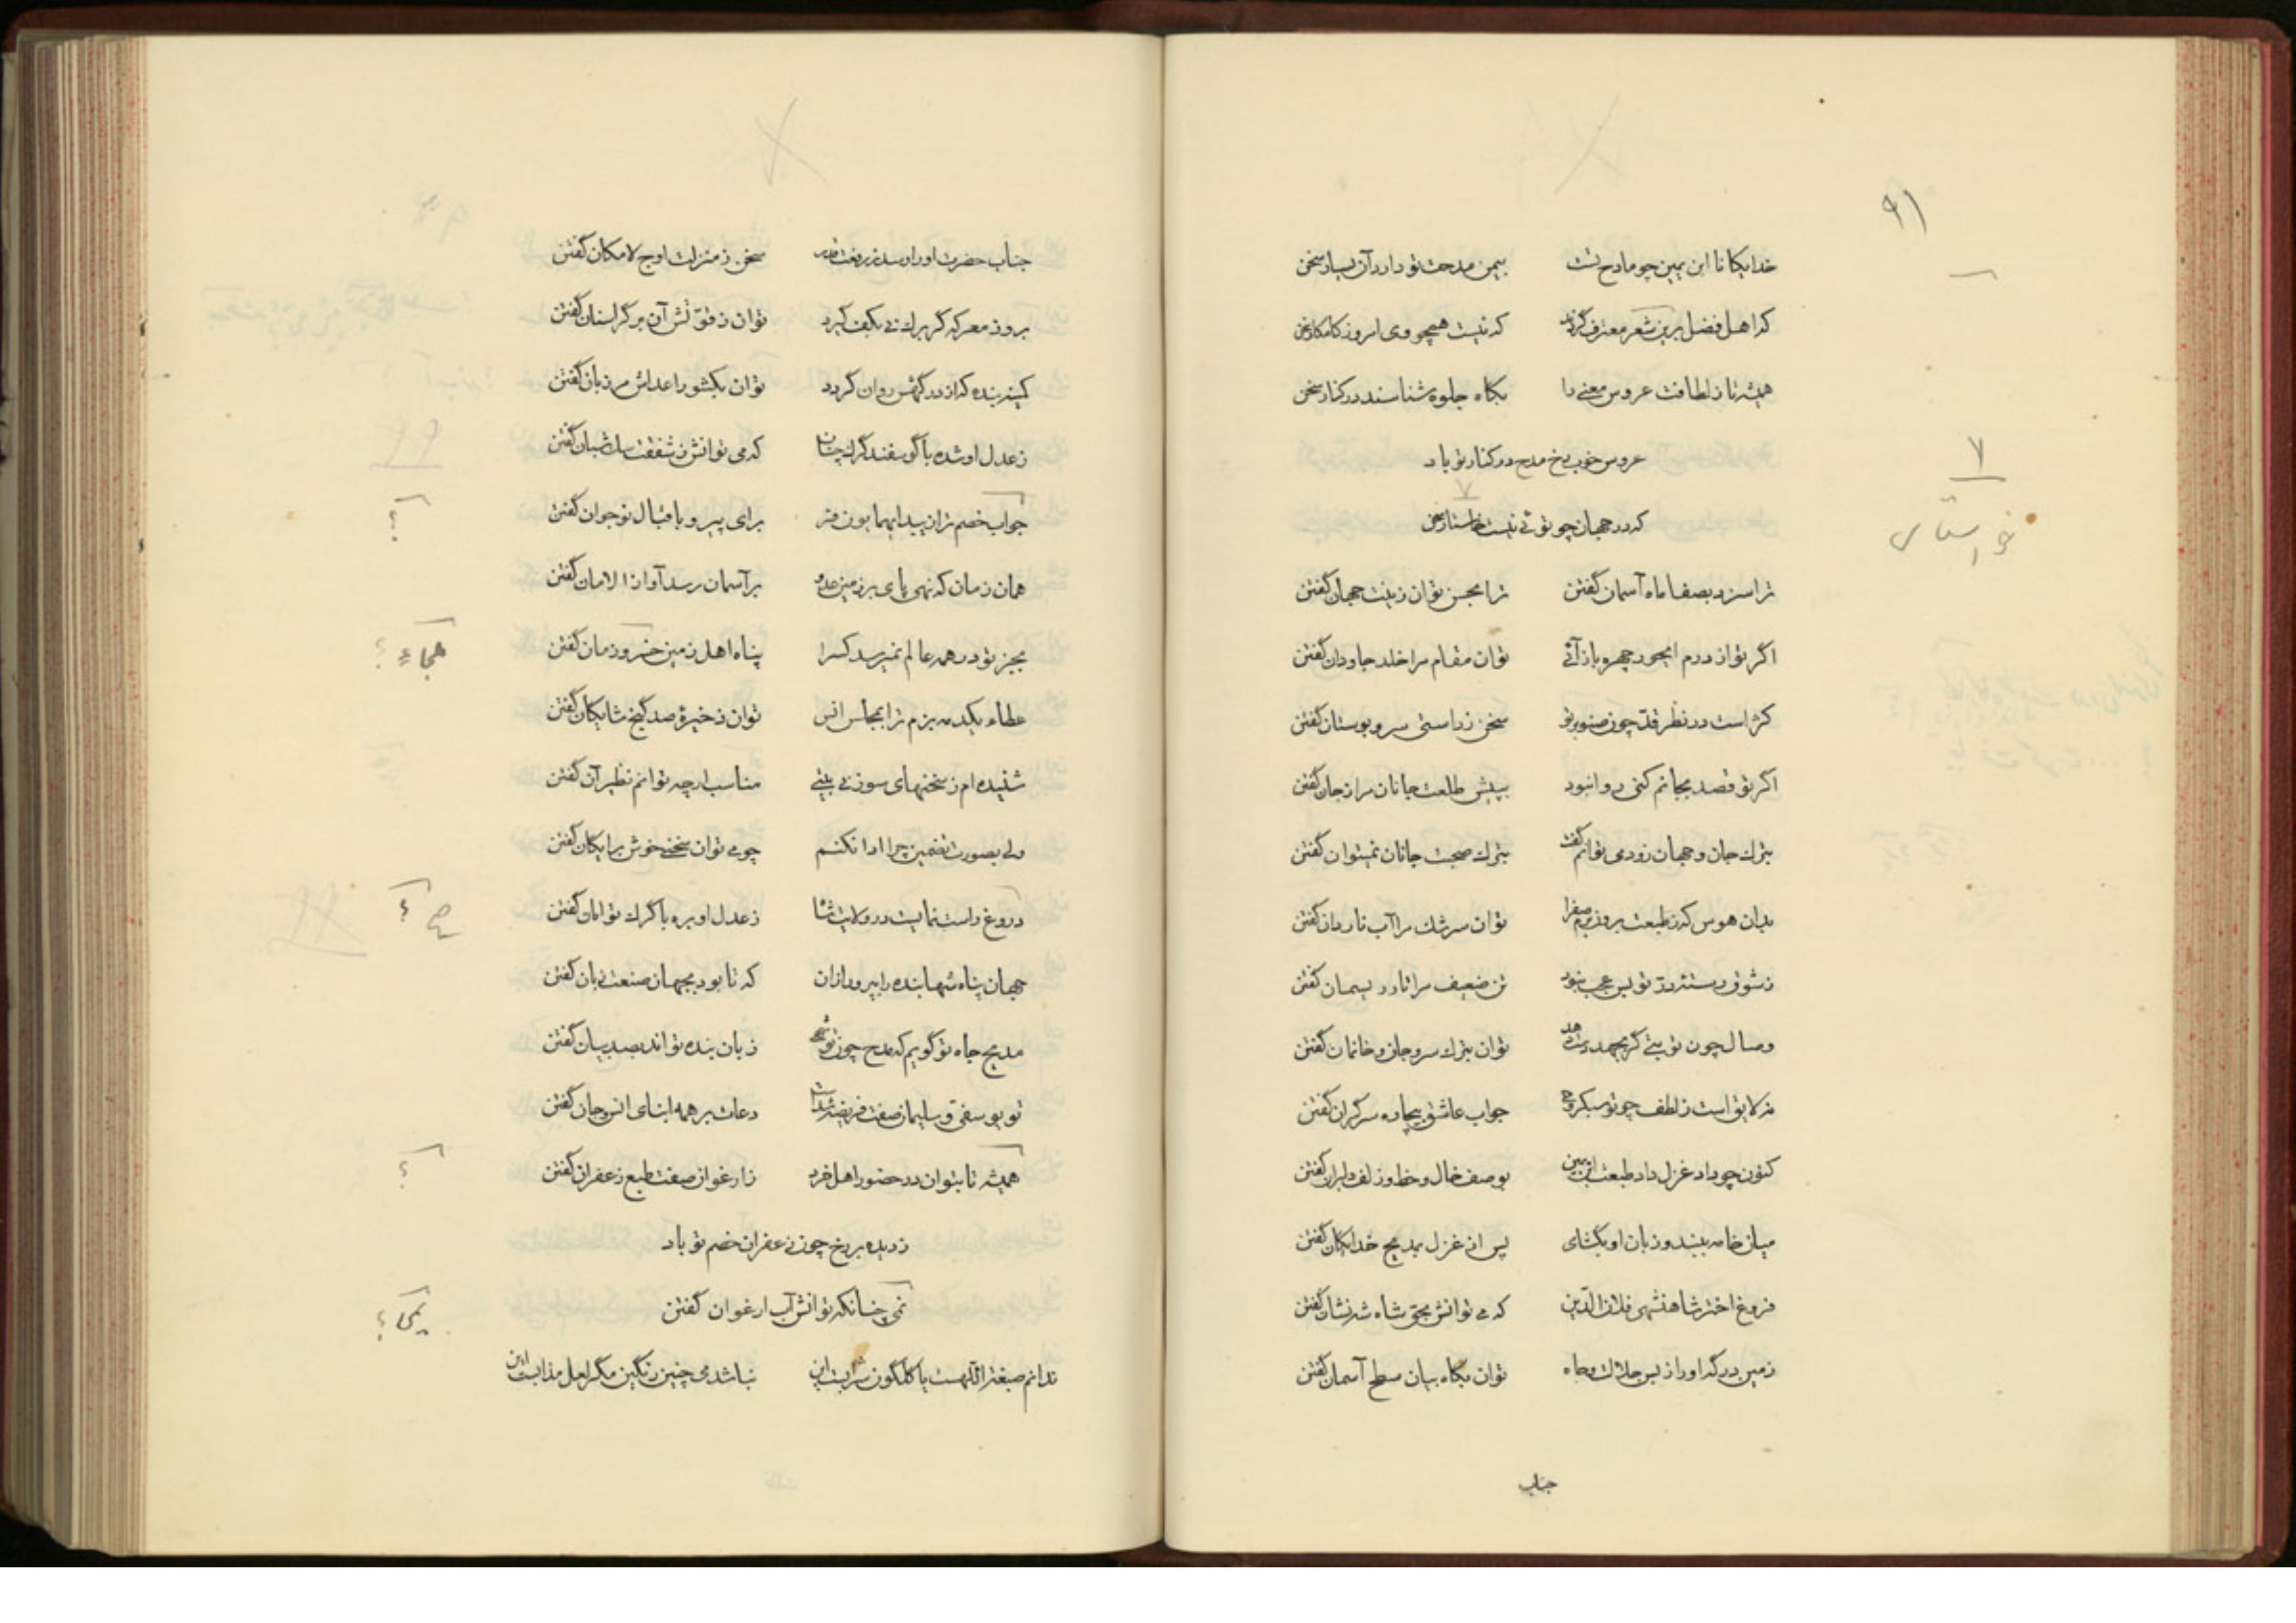 ۹۱
خدایگانا ابن یمین چو مادح تست بیمن مدحت تو دارد آن یسار سخن
که اهل فضل برین شعر معترف گردند که نیست همچو وی امروز کامکار سخن
همیشه تا ز لطافت عروس معنی را بگاه جلوه شناسند در کنار سخن
عروس خوب رخ مدح در کنار تو باد
۷
که در جهان چو توئی نیست خواستار سخن
ترا سزد بصفا ماه آسمان گفتن ترا بحسن توان زینت جهان گفتن
اگر تو از درم ای حور چهره باز آئی توان مقام مرا خلد جاودان گفتن
کژ است در نظر قدّ چون صنوبر تو سخن ز راستی سرو بوستان گفتن
اگر تو قصد بجانم کنی روا نبود بپیش طلعت جانان مرا ز جان گفتن
بترک جان و جهان زود می توانم گفت بترک صحبت جانان نمیتوان گفتن
بدان هوس که ز طبعت برون برم صفرا توان سرشک مرا آب ناردان گفتن
ز شوق رستهٔ درّ تو بس عجب نبود تن ضعیف مرا تار ریسمان گفتن
وصال چون تو بتی گر بجهد دست دهد توان بترک سر و جان و خانمان گفتن
نه لایق است ز لطف چو تو سبکروحی جواب عاشق بیچاره سرگران گفتن
کنون چو داد غزل داد طبعت ابن یمین بوصف خال و خط و زلف دلبران گفتن
میان خامه ببند و زبان او بگشای پس از غزل بمدیح خدایگان گفتن
فروغ اختر شاهنشهی فلان الدّین که می توانش بحق شاه شه نشان گفتن
زمین درگه او را ز بس جلالت و جاه توان بگاه بیان سطح آسمان گفتن
جناب
جناب حضرت او را رسد ز رفعت قدر سخن ز منزلت اوج لامکان گفتن
بروز معرکه گر برگ نی بکف گیرد توان ز قوّتش آن برگ را سنان گفتن
کمینه بنده که از درگهش روان گردد توان بکشور اعداش مرزبان گفتن
ز عدل او شده با گوسفند گرگ چنان که می توانش ز شفقت سگ شبان گفتن
جواب خصم ترا ن برای پیر و باقبال نوجوان گفتن
همان زمان که نهی پای بر زمین عدو بر آسمان رسد آواز الامان گفتن
بجز تو در همه عالم نمیرسد کس را پناه اهل زمین خسرو زمان گفتن
عطاء یکدمه بزم ترا بمجلس انس توان ذخیرهٔ صد گنج شایگان گفتن
شنیده ام ز سخنهای سوزنی بیتی مناسب ار چه توانم نظیر آن گفتن
ولی بصورت تضمین چرا ادا نکنم چو می توان سخنی خوش برایگان گفتن
دروغ راست نمایست در ولایت شاه ز عدل او بره با گرگ توامان گفتن
جهان پناه شها بنده را بپرور از آن که تا بود بجهان صنعت زبان گفتن
مدیح جاه تو گویم که مدح چون تو شهی زبان بنده تواند بصد بیان گفتن
تو یوسفی و سلیمان صفت فریضه شدست دعات بر همه ابنای انس و جان گفتن
همیشه تا بتوان در حضور اهل خرد ز ارغوان صفت طبع زعفران گفتن
ز دیده بر رخ چون زعفران خصم تو باد
نمی چنانکه توانش آب ارغوان گفتن
ندانم صبغة اللهست یا گلگون شرابست این نباشد می چنین رنگین مگر لعل مذابست این